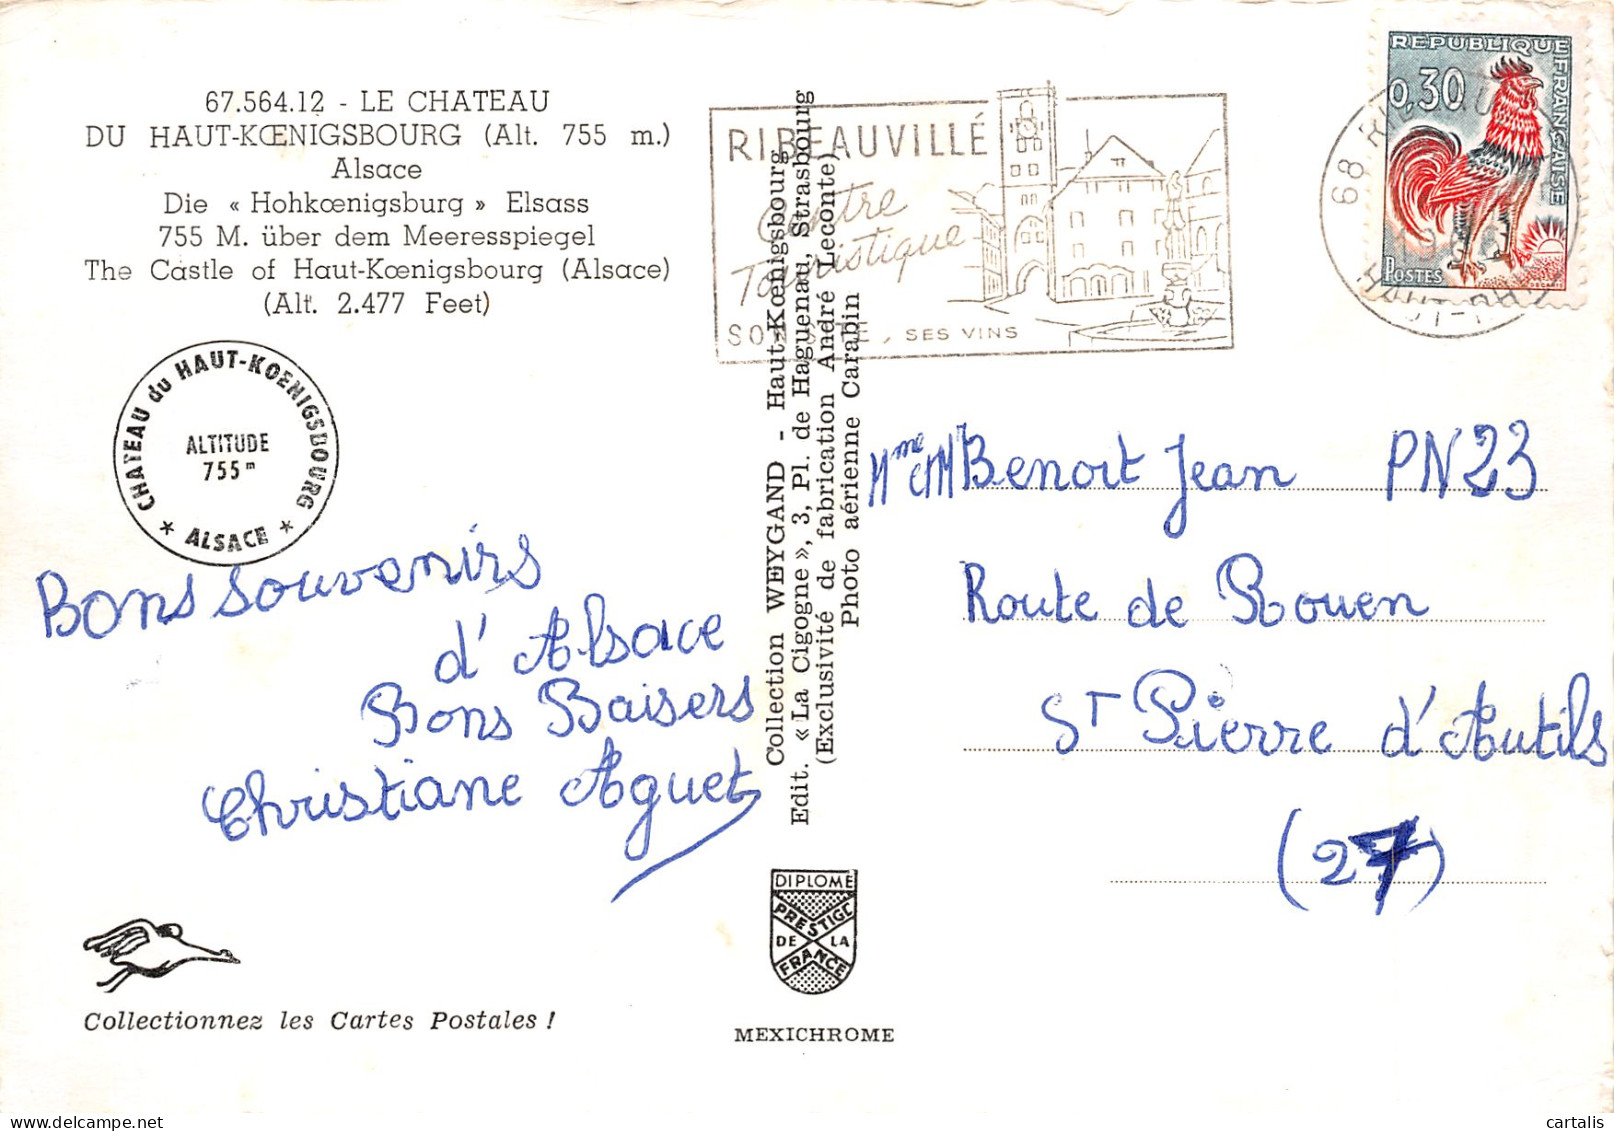 67.564.12 - LE CHATEAU
DU HAUT-KŒNIGSBOURG (Alt. 755 m.)
Alsace
Die « Hohkœnigsburg » Elsass
755 M. über dem Meeresspiegel
The Castle of Haut-Kœnigsbourg (Alsace)
(Alt. 2.477 Feet)
CHATEAU du HAUT-KOENIGSBOURG
ALTITUDE
755 m
* ALSACE *
Bons souvenirs
d'Alsace
Bons Baisers
Christiane Aguet
Collectionnez les Cartes Postales !
Collection WEYGAND - Haut-Kœnigsbourg
Edit. « La Cigogne », 3, Pl. de Haguenau, Strasbourg
(Exclusivité de fabrication André Leconte)
Photo aérienne Carabin
DIPLOME
PRESTIGE
DE LA
FRANCE
MEXICHROME
RIBEAUVILLÉ
Centre
Touristique
SES VINS
REPUBLIQUE FRANÇAISE
0,30
POSTES
DECARIS
68
HAUT-RHIN
Mme et Mr Benoit Jean PN23
Route de Rouen
ST Pierre d'Autils
(27)
cartalis
delcampe.net